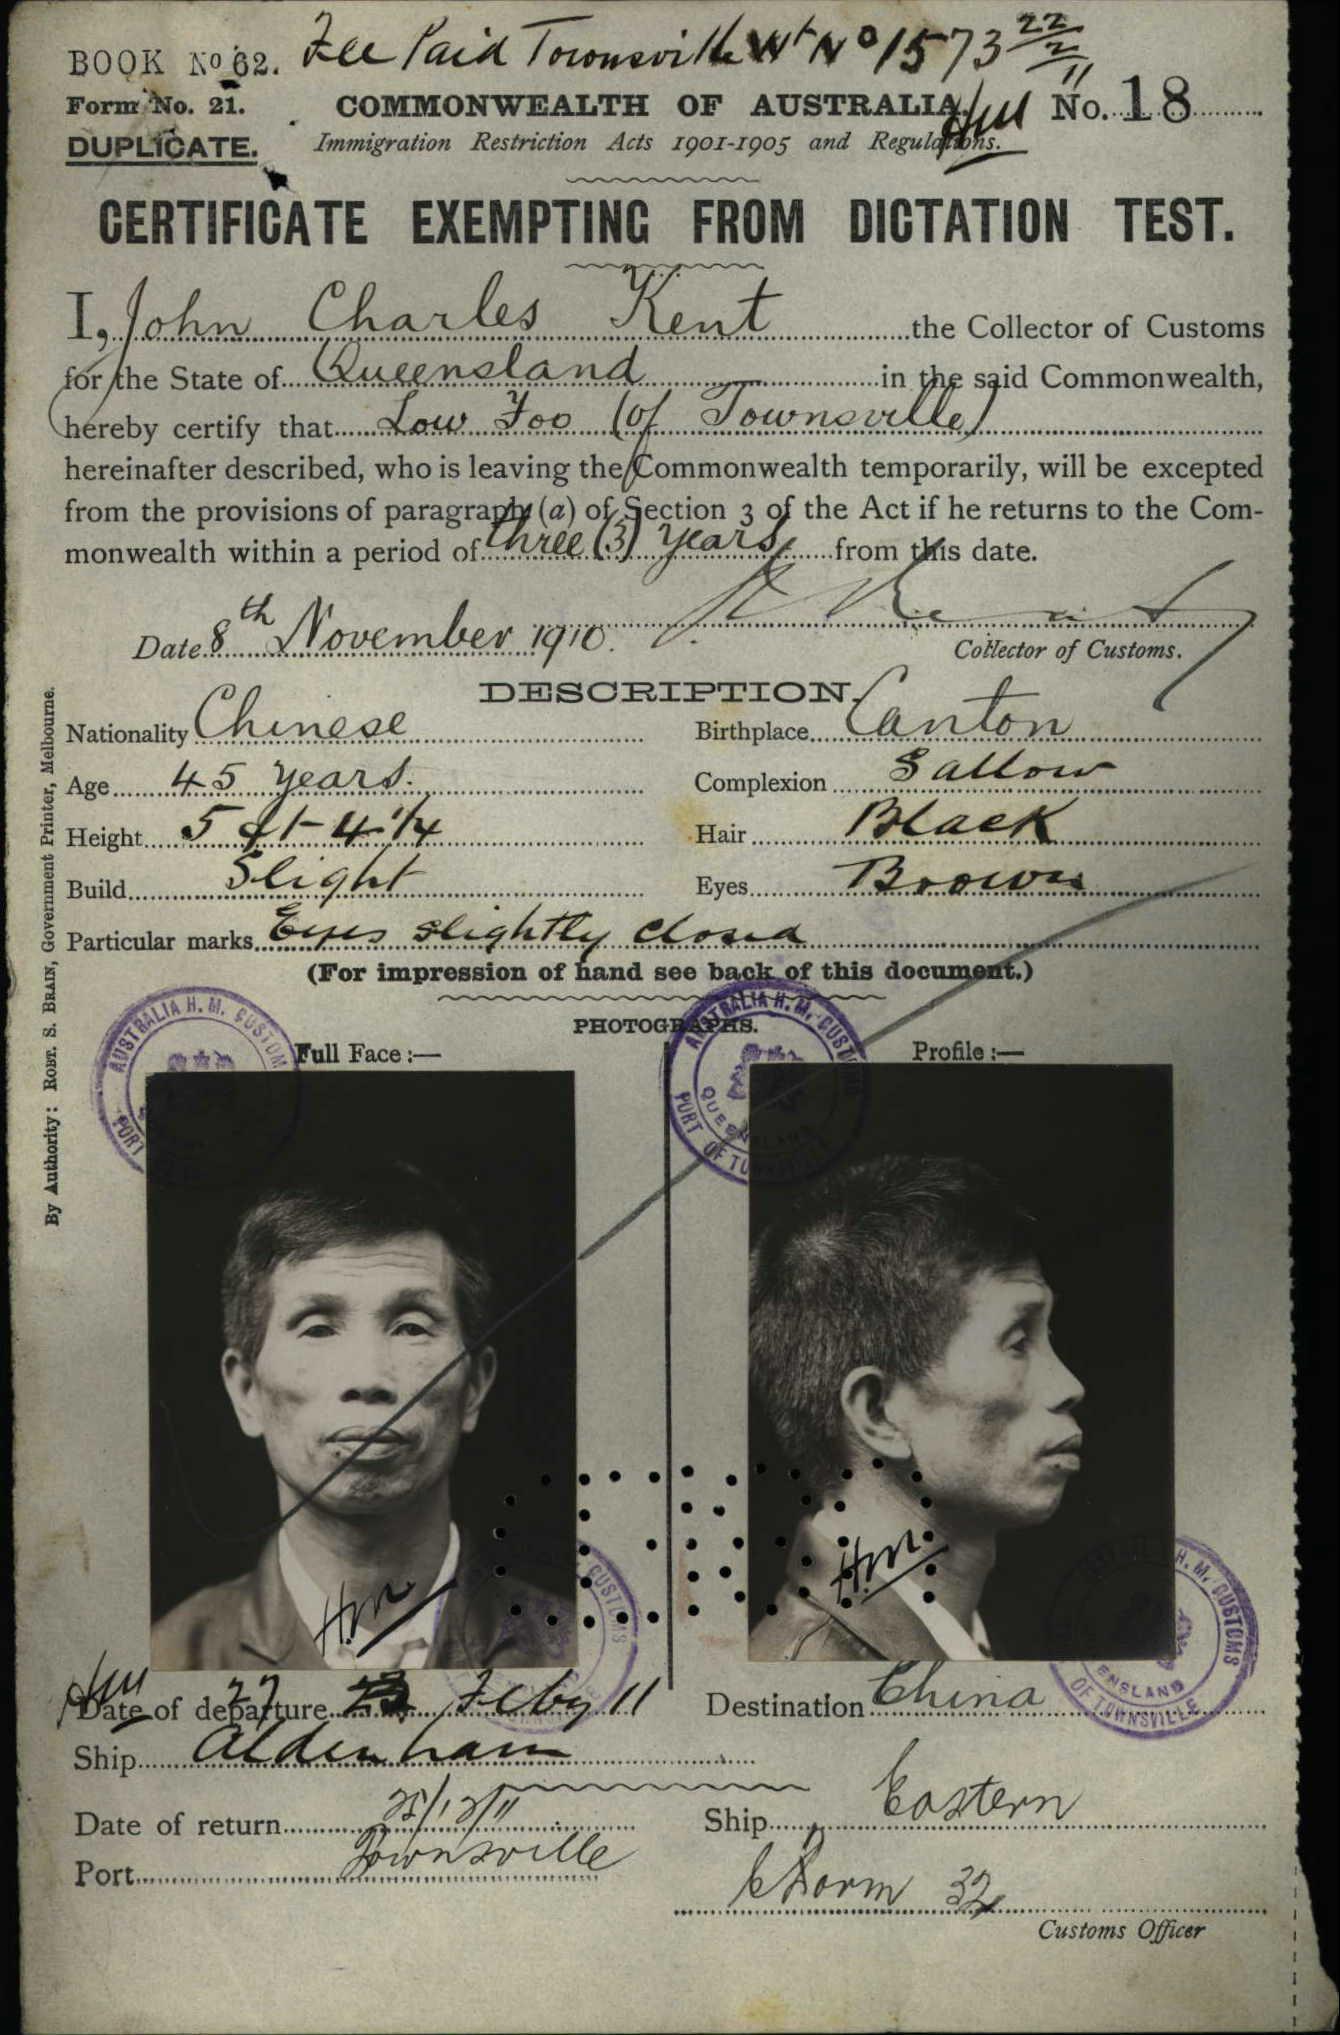 BOOK No 62. Fee Paid Townsville Wt No 1573 22/2/11
Form No. 21. COMMONWEALTH OF AUSTRALIA. No. 18
DUPLICATE. Immigration Restriction Acts 1901-1905 and Regulations.
CERTIFICATE EXEMPTING FROM DICTATION TEST.
I, John Charles Kent the Collector of Customs
for the State of Queensland in the said Commonwealth,
hereby certify that Low Foo (of Townsville)
hereinafter described, who is leaving the Commonwealth temporarily, will be excepted
from the provisions of paragraph (a) of Section 3 of the Act if he returns to the Com-
monwealth within a period of three (3) years from this date.
Date 8th November 1910.
Collector of Customs.
DESCRIPTION.
Nationality Chinese Birthplace Canton
Age 45 years. Complexion Sallow
Height 5 ft- 4 1/4 Hair Black
Build Slight Eyes Brown
Particular marks Eyes slightly closed
(For impression of hand see back of this document.)
PHOTOGRAPHS.
Full Face :— Profile :—
AUSTRALIA H. M. CUSTOM
PORT
AUSTRALIA H. M. CUSTOMS
QUEENSLAND
PORT OF TOWNSVILLE
H.M. H.M.
CUSTOMS
H. M. CUSTOMS
ENSLAND
OF TOWNSVILLE
Date of departure 27 Feby 11 Destination China
Ship Aldenham
Date of return 25/12/11 Ship Eastern
Port Townsville
32
Customs Officer
By Authority: ROBT. S. BRAIN, Government Printer, Melbourne.